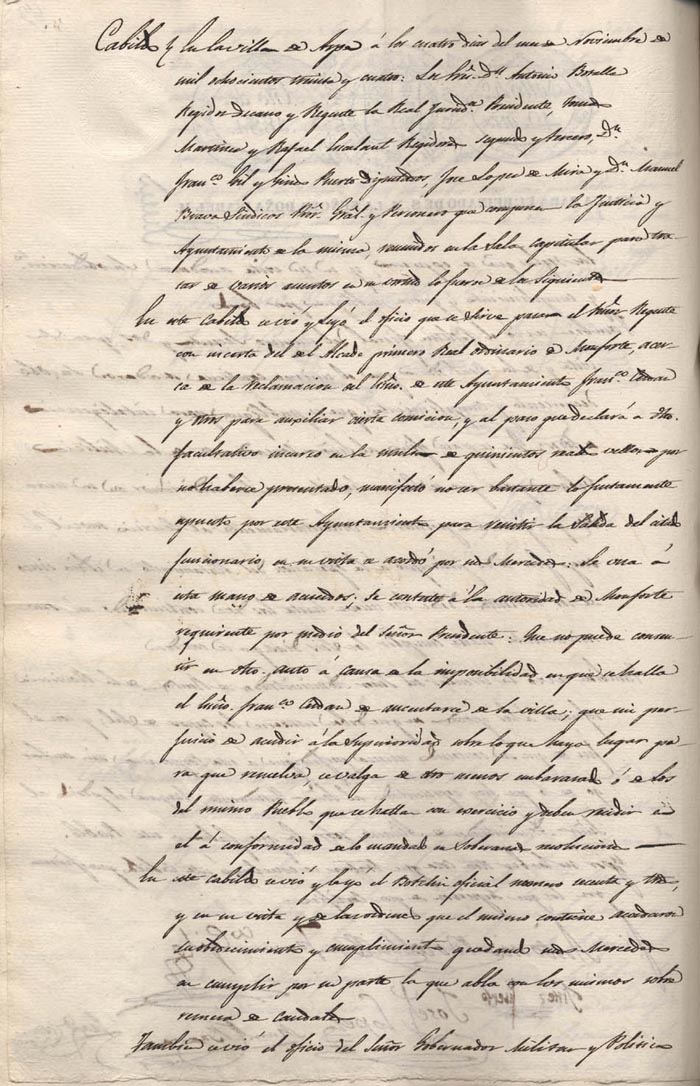 Cabildo } En la villa de Aspe á los cuatro dias del mes de Noviembre de
mil ochocientos treinta y cuatro: Los Srs. Dn. Antonio Botella
Regidor decano y Regente la Real Jurisdn. Presidente, Tomas
Martinez y Rafael Escalant Regidores segundo y tercero, Dn.
Franco. Gil y Gines Puerto Diputados, Jose Lopez de Mira y Dn. Manuel
Bravo Sindicos Pror. Gral. y Personero que componen la Justicia y
Ayuntamiento de la misma, reunidos en la Sala capitular para tra-
tar de varios asuntos en su virtud lo fueron de los siguientes
En este Cabildo se vió y leyó el oficio que se sirve pasar el Señor Regente
con incerta del del Alcalde primero Real ordinario de Monforte, acer-
ca de la reclamacion del Ciruo. de este Ayuntamiento Franco.
y otros para auxiliar cierta comision, y al paso que declará á dho.
facultativo incurso en la multa de quinientos reales vellon por
no haberse presentado, manifestó no ser bastante lo justamente
espuesto por este Ayuntamiento para resistir la salida del citado
funcionario, en su vista se acordó por sus Mercedes: Se una á
esta mano de acuerdos; Se conteste á la autoridad de Monforte
requirente por medio del Señor Presidente: Que no puede consen-
tir en dho. auto á causa de la imposibilidad en que se halla
el Ciruo. Franco. de ausentarse de la villa; que sin per-
juicio de acudir á la Superioridad sobre lo que haya lugar pa-
ra que resuelva, se valga de otro menos embarazado ó de los
del mismo Pueblo que se hallan con exercicio y deben residir en
el á conformidad de lo mandado en Soberanas resoluciones
En este cabildo se vió y leyó el Boletin oficial numero secenta y tres,
y en su vista y de las ordenes que el mismo contiene acordaron
su obedecimiento y cumplimiento quedando sus Mercedes
en cumplir por su parte la que abla con los mismos sobre
remesa de caudales
Tambien se vió el oficio del Señor Gobernador Militar y Politico